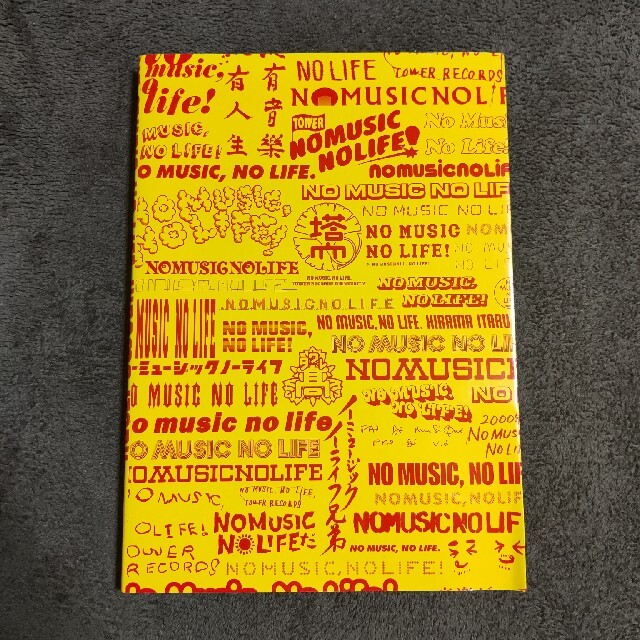 music,
life!
有音樂
有人生
NO LIFE
TOWER RECORDS
NOMUSICNOLIF
MUSIC,
NO LIFE!
TOWER
NOMUSIC
NOLIFE!
No Musi
No Life
O MUSIC, NO LIFE.
nomusicnolif
NO MUSIC NO LIF
NO MUSIC,
NO LIFE,
塔
NO MUSIC NO LIFE
NO MUSIC
NO LIFE!
NO MUSIC
NO LIFE
NOM
NO L
NOMUSICNOLIFE
NO MUSIC, NO LIFE.
NO MUSIC, NO LIFE!
NO MUSIC.
NO LIFE!
NOMUSIC,NOLIFE
MUSIC NO LIFE
NO MUSIC,
NO LIFE!
NO MUSIC, NO LIFE. HIRAMA ITARU
NO MUSIC NO LIFE
ーミュージックノーライフ
NOMUSIC
O MUSIC NO LIFE
NO MUSIC
NO LIFE!
NO LIFE
o music no life
ノーミュージック
ノーライフ兄弟
2000
NO MUS
NO LI
NO MUSIC NO LIFE
NOMUSICNOLIFE
NO MUSIC, NO LIF
NO MUSIC,
NO MUSIC, NO LIFE,
TOWER RECORDS
NOMUSIC,NOLIFE
OLIFE!
OWER
RECORDS!
NOMUSIC
NOLIFEだ
NOMUSIC NO LIF
NO MUSIC, NO LIFE.
NOMUSIC,NOLIFE!